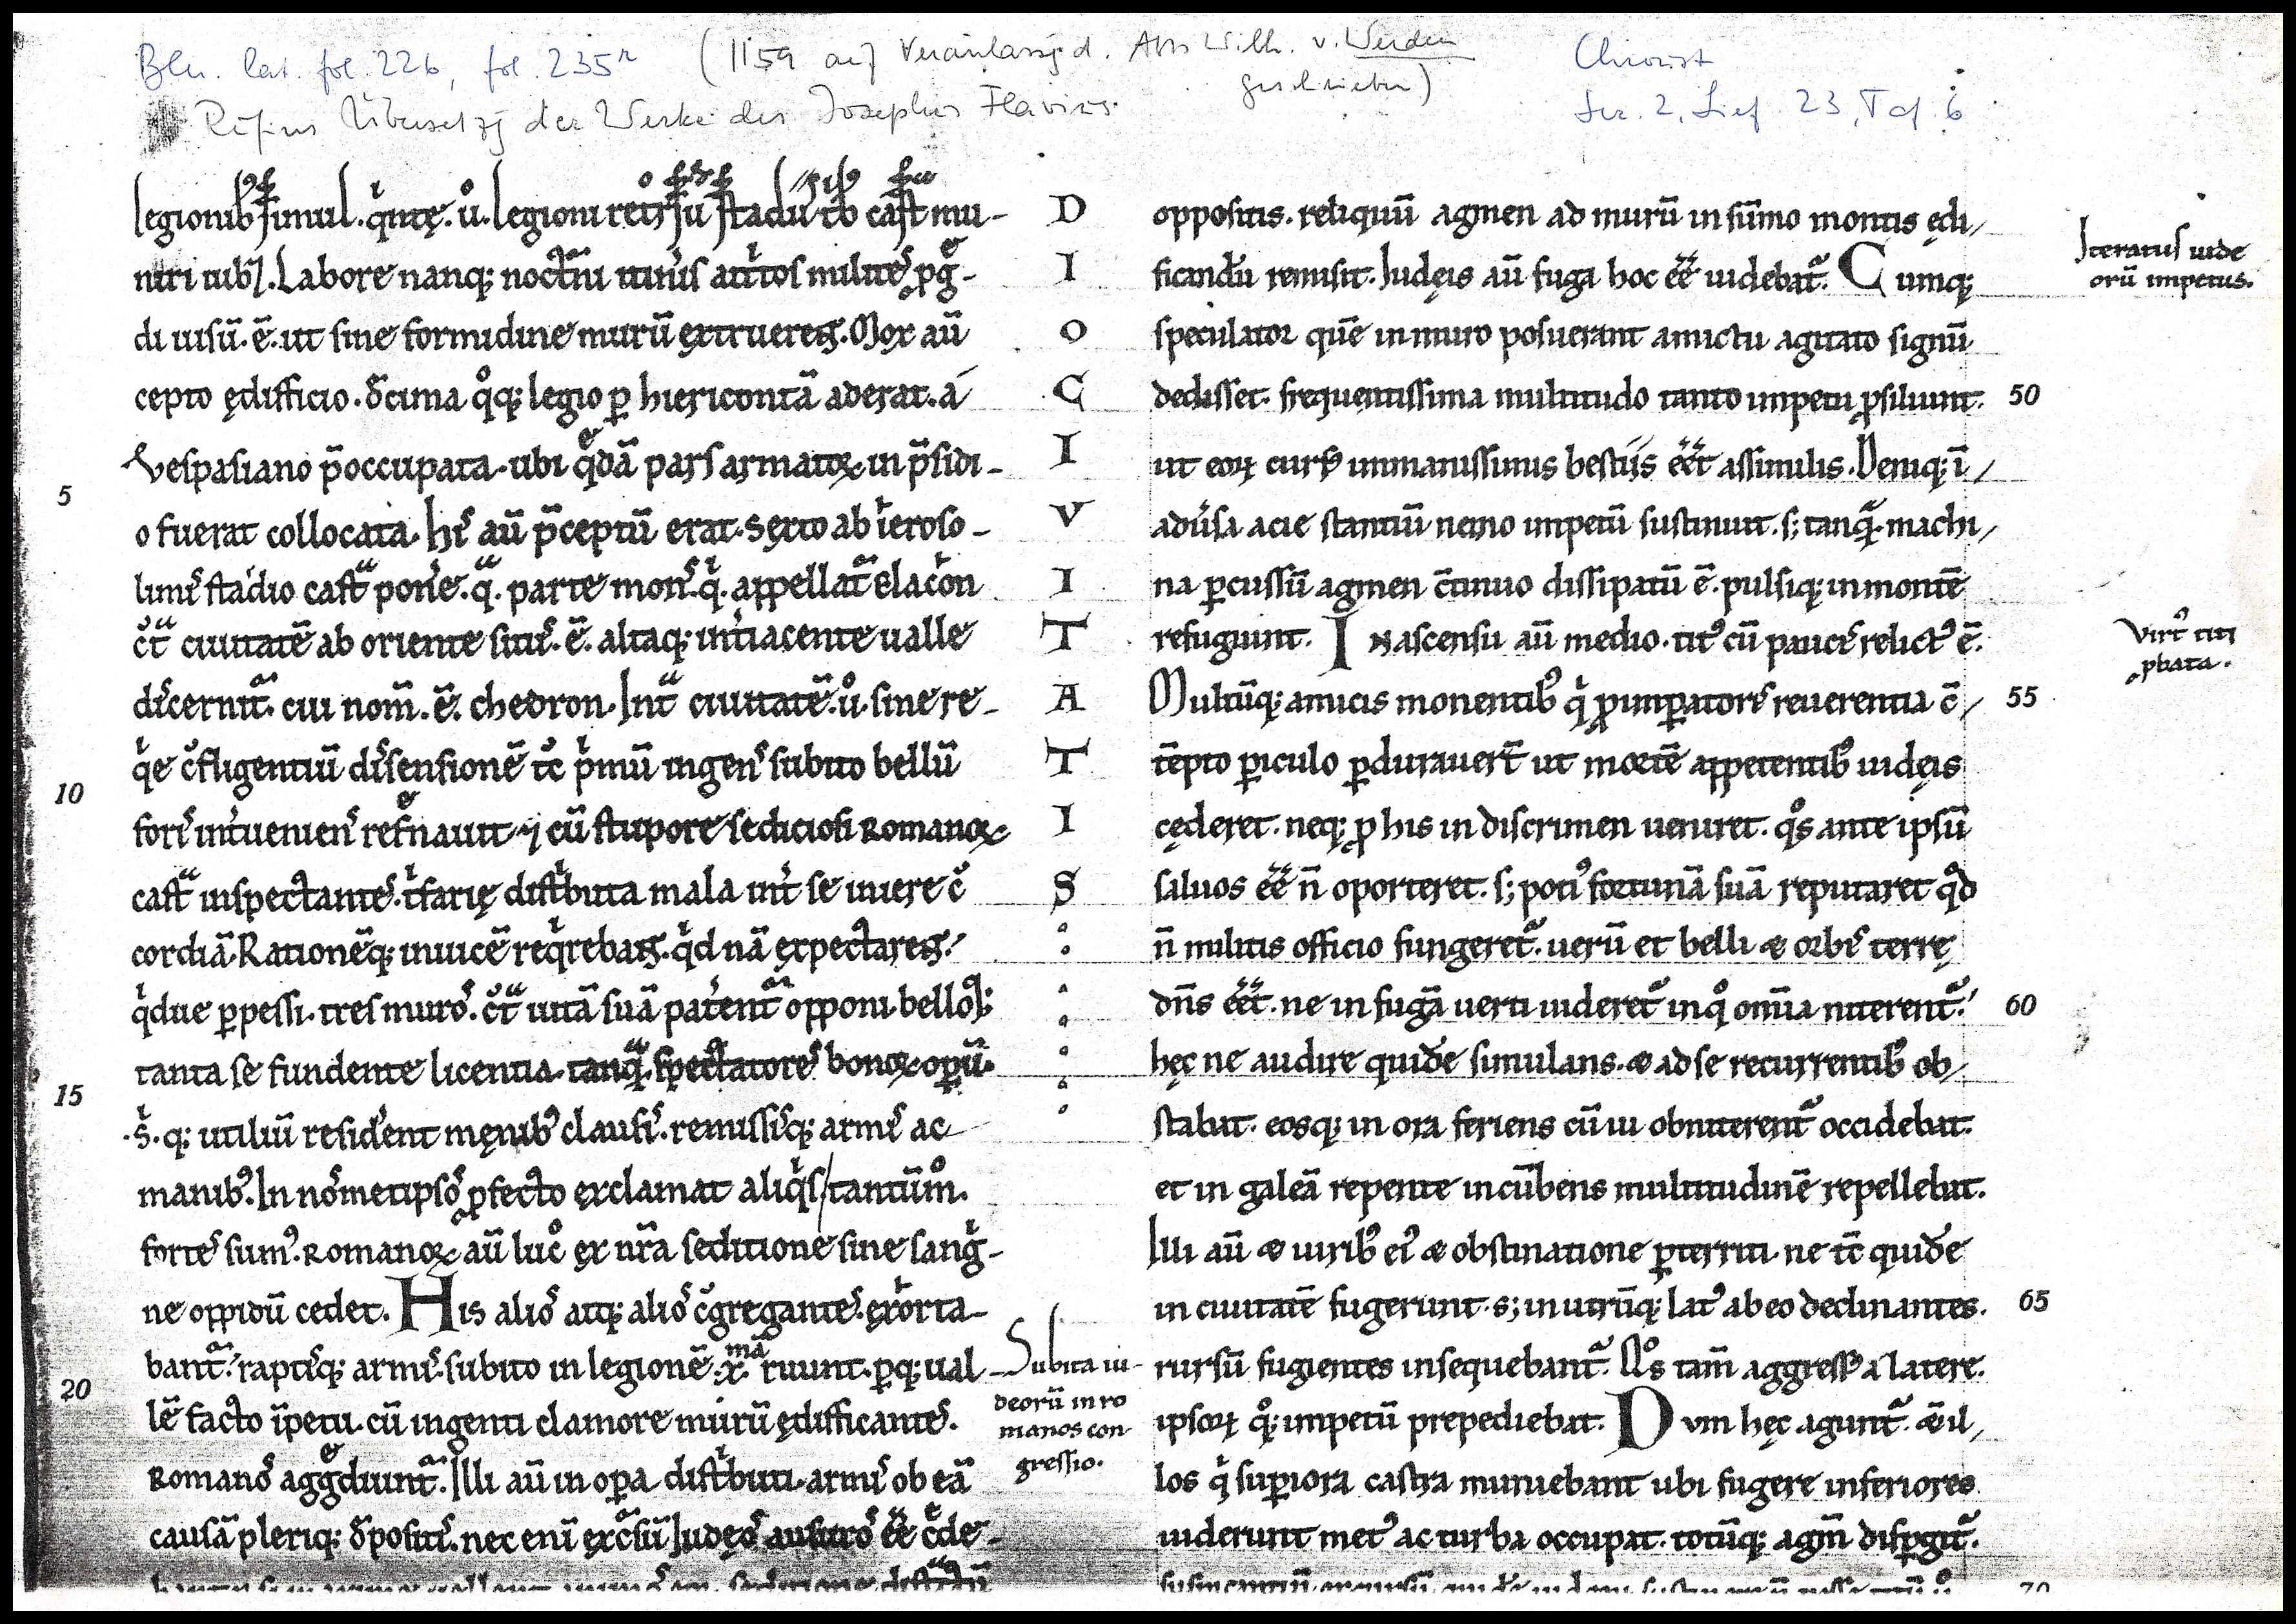 Bln. lat. fol. 226, fol. 235r (1159 auf Veranlassg d. Abts Wilh. v. Werden
geschrieben)
Rufins Übersetzg der Werke des Josephus Flavius.
Christ
Ser. 2, Lief. 23, Taf. 6
legionibꝰ simul. qͥntę. ů. legioni tͥb caſt mu-
niri iubꝫ. Labore nanqꝫ noctͥni itinͥis attͥtos militeˢ ꝓgͤ-
di uisū. ē. ut sine formidine murū extruereꝫ. Mox aū
cepto ędifficio. dͨcima qͦqꝫ legio ꝑ hiericontā aderat. á
Vespasiano p̄occupata. ubi qͤdā pars armatoꝝ in p̄sidi-
o fuerat collocata. hiˢ aū p̄ceptū erat. Sexto ab ieroso-
limiˢ stadio caſtͣ ponͤe. qͣ. parte monˢ. qͥ. appellatᷓ Elacon
cͦtͣ ciuitatē ab oriente situˢ. ē. altaqꝫ intͥiacente ualle
diˢcernitᷓ. cui nom̄. ē. chedron. Intͣ ciuitatē. ů. sine re-
qͥe cͦfligentiū diˢsensionē tͨ pͥmū ingenˢ subito bellū
foriˢ intͥuenienˢ refͤnauit. ⁊ cū stupore sediciosi Romanoꝝ
caſtͣ inspectanteˢ. tͥfarię diſtͥbuta mala intͥ se iniere cͦ
cordiā. Rationēqꝫ inuicē reqͥrebaꝫ. qͥd nā expectareꝫ.
qͥdue ꝑpessi. tres muroˢ. cͦtͣ uitā suā patͥentᷓ opponi. belloqꝫ
tanta se fundente licentia. tanqͣ. spectatoreˢ bonoꝝ opū.
s̊. qꝫ utiliū residͤent męnibꝰ clausiˢ. remissiˢqꝫ armiˢ ac
manibꝰ. In noˢmetipsoˢ ꝓfecto exclamat aliqͥs / tantūm̊.
forteˢ sumꝰ. Romanoꝝ aū lucͦ ex nr̄a seditione sine sangͥ-
ne oppidū cedet. His alioˢ atqꝫ alioˢ cͦgreganteˢ. exͦorta-
bantᷓ. raptiˢqꝫ armiˢ. subito in legionē .x.mā ruunt. ꝑqꝫ ual-
lē facto īpetu. cū ingenti clamore murū ędifficanteˢ.
Romanoˢ aggͤdiuntᷓ. Illi aū in oꝑa diſtͥbuti. armiˢ ob eā
causā pleriqꝫ dͤpositiˢ. nec enī excͨsū Iudęoˢ ausuroˢ ēē cͦde-
5
10
15
20
Subita iu-
deorū in ro
manos con-
gressio.
D
I
O
C
I
V
I
T
A
T
I
S
oppositis. reliquū agmen ad murū in sūmo montis ędi/
ficandū remisit. Iudęis aū fuga hoc ēē uidebatᷓ. Cumqꝫ
speculator quē in muro posuerant amictu agitato signū
dedisset. frequentissima multitudo tanto impetu ꝓsiluunt.
ut eoꝝ cursꝰ immanissimus bestiis ēēt assimilis. Deniqꝫ ī/
adūsa acie stantiū nemo impetū sustinuit. sꝫ tanqͣ. machi/
na ꝑcussū agmen c̄tinuo dissipatū ē. pulsiqꝫ in montē
refugiunt. In ascensu aū medio. titꝰ cū pauciˢ relictꝰ ē.
Multūqꝫ amicis monentibꝰ qͥ ꝓ imꝑatoriˢ reuerentia c̄/
tēpto ꝑiculo ꝑdurauer̄t ut mortē appetentibꝰ iudęis
cęderet. neqꝫ ꝓ his in discrimen ueniret. qͦs ante ipsū
saluos ēē n̄ oporteret. sꝫ potiꝰ fortunā suā reputaret qͥd
n̄ militis officio fungeretᷓ. uerū et belli & orbiˢ terrę
dn̄s ēēt. ne in fugā uerti uideretᷓ in qͦ omīa niterentᷓ.
hęc ne audire quidē simulans. & ad se recurrentibꝰ ob/
stabit. eosqꝫ in ora feriens cū ui obniterentᷓ occidebat.
et in galeā repente incūbens multitudinē repellebat.
Illi aū & uiribꝰ eiꝰ & obstinatione ꝑterriti. ne tc̄ quidē
in ciuitatē fugerunt. sꝫ in utrūqꝫ latꝰ ab eo declinantes.
rursū fugientes insequebantᷓ. Qͦs tam̄ aggressꝰ a latere.
ipsoꝝ qͦqꝫ impetū prepediebat. Dvm hęc aguntᷓ. &il/
los qͥ suꝑiora castra muniebant ubi fugere inferiores
uiderunt metꝰ ac turba occupat. totūqꝫ agm̄ disꝑgitᷓ.
50
55
60
65
70
Iteratus iude
orū impetus.
Virtꝰ titi
ꝓbata.